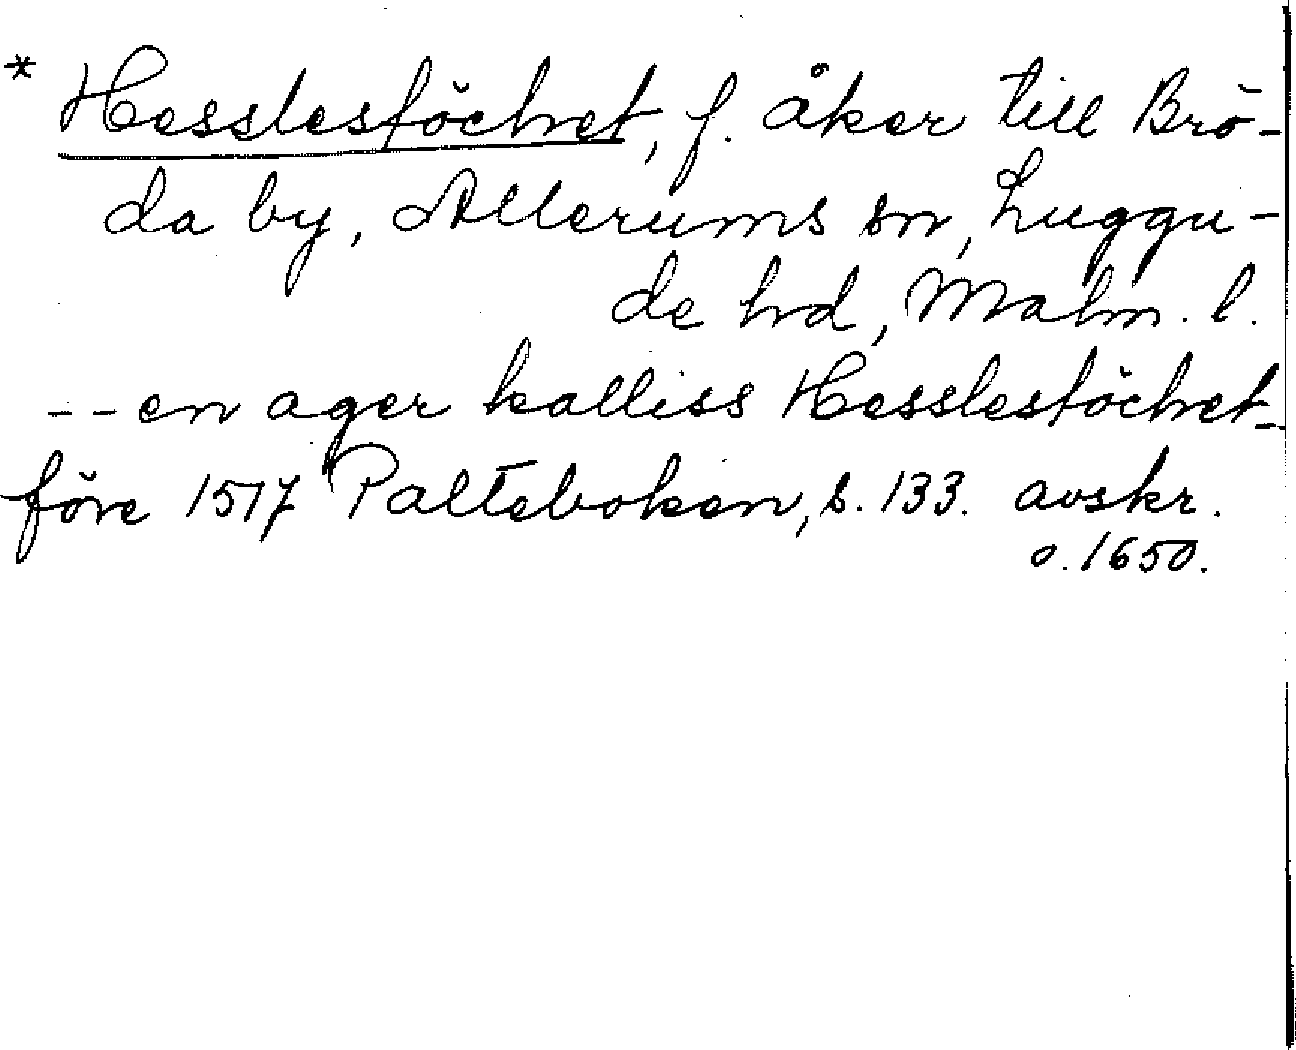 * Hesslestöchret, f. åker till Brö-
da by, Allerums sn, Luggu-
de hrd, Malm. l.
-- en ager kalliss Hesslestöchret --
före 1517 Palteboken, s. 133. avskr.
o. 1650.